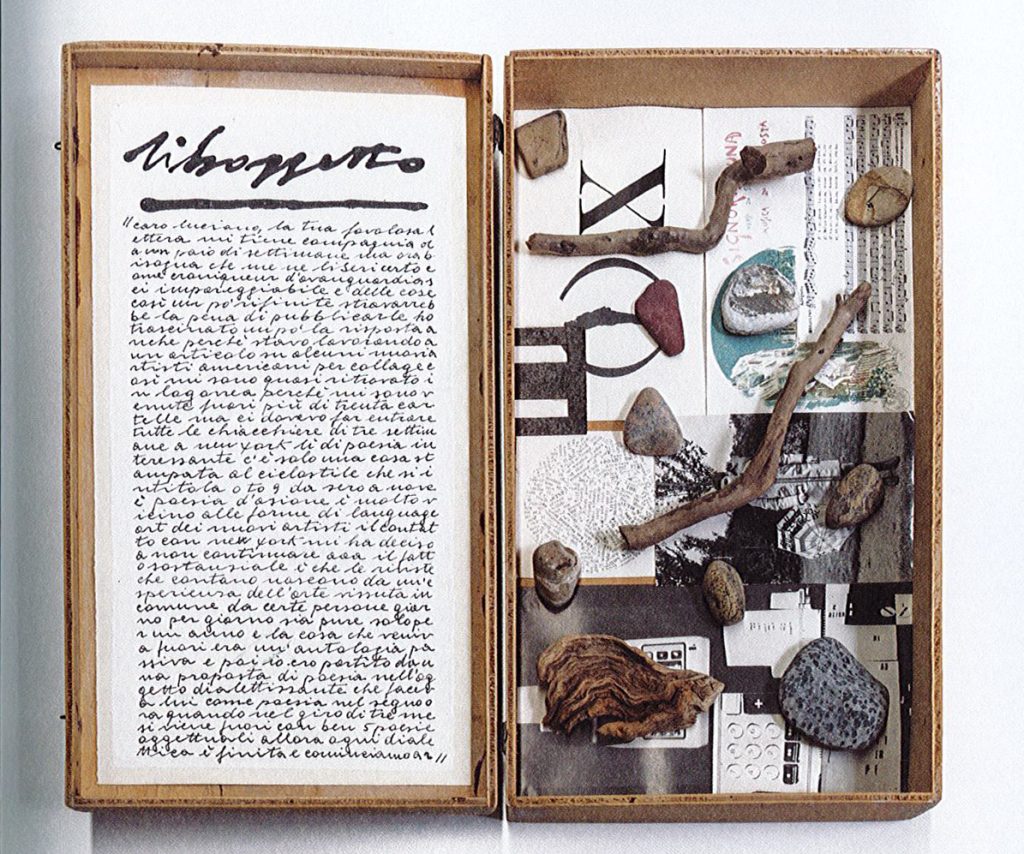 liboggetto
"caro luciano, la tua favolosa l
ettera mi tiene compagnia d
a un paio di settimane ma ora b
isogna che me ne liberi certo e
ome croniqueur d'avanguardia s
ei impareggiabile e delle cose
così un po' rifinite stravarreb
be la pena di pubblicarle ho
trascinato un po' la risposta a
nche perchè stavo lavorando a
un articolo su alcuni nuovi a
rtisti americani per collage e
osi mi sono quasi ritrovato i
n laguna perchè mi sono v
enute fuori più di trenta car
telle ma ci dovevo far entrare
tutte le chiacchiere di tre settim
ane a new york lì di poesia in
teressante c'è solo una cosa st
ampata al ciclostile che si i
ntitola 0 to 9 da zero a nove
è poesia d'azione è molto v
icino alle forme di language
art dei nuovi artisti il contat
to con new york mi ha deciso
a non continuare il fatt
o sostanziale è che le riviste
che contano nascono da un'e
sperienza dell'arte vissuta in
comune da certe persone gior
no per giorno sia pure solo pe
r un anno e la cosa che veniv
a fuori era un'antologia pa
ssiva e poi io ero partito da u
na proposta di poesia nell'og
getto dialettizzante che facev
a lui come poesia nel segno o
ra quando nel giro di tre me
si viene fuori con ben 5 poesie
oggettuali allora ogni diale
ttica è finita e cominciamo a r"
X
SIGNOR